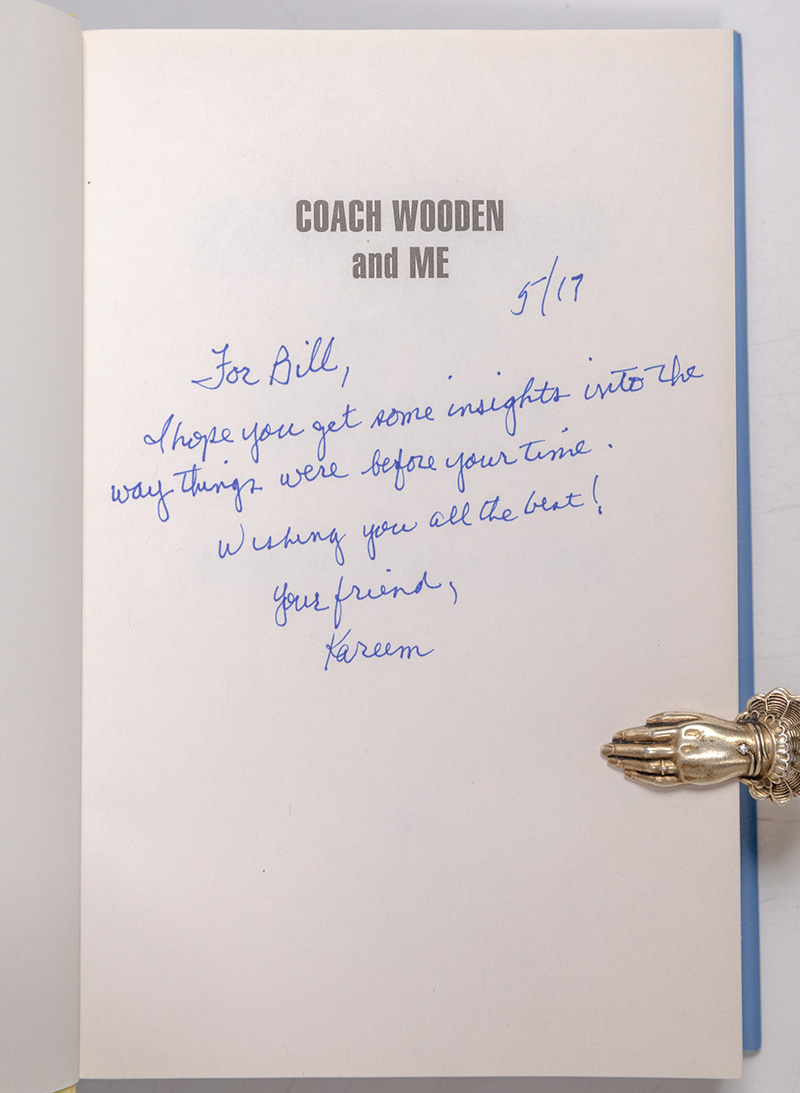 COACH WOODEN
and ME
5/17
For Bill,
I hope you get some insights into the
way things were before your time.
Wishing you all the best!
Your friend,
Kareem